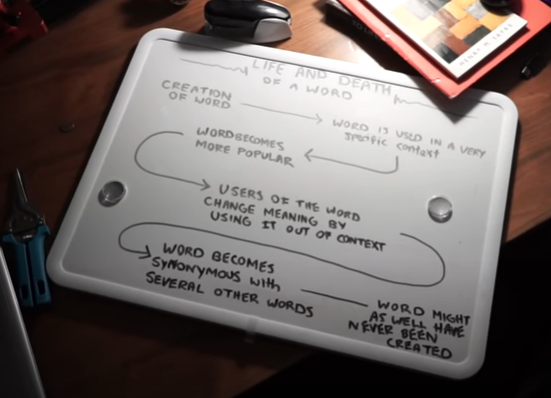 LIFE AND DEATH
OF A WORD
CREATION
OF WORD
WORD IS USED IN A VERY
Specific context
WORD BECOMES
MORE POPULAR
USERS OF THE WORD
CHANGE MEANING BY
USING IT OUT OF CONTEXT
WORD BECOMES
SYNONYMOUS WITH
SEVERAL OTHER WORDS
WORD MIGHT
AS WELL HAVE
NEVER BEEN
CREATED
HENRY M.